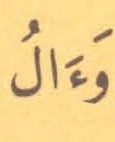 وَءَالُ